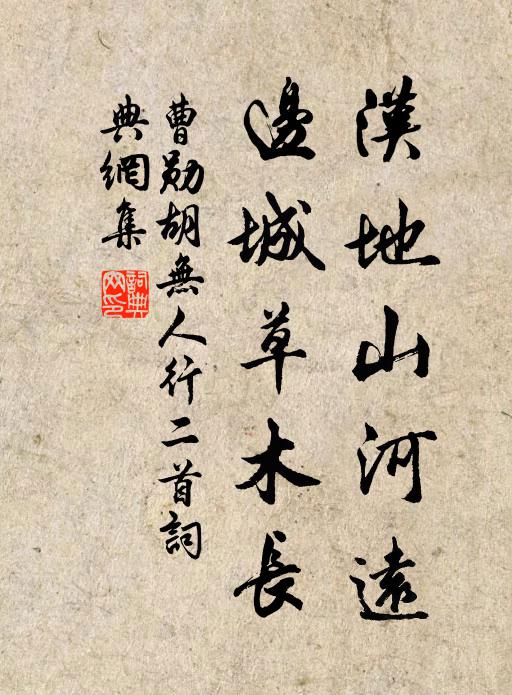 漢地山河遠
邊城草木長
曹勛胡無人行二首詞
典網集
詞典網印